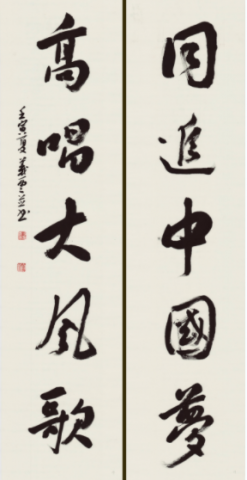 同追中國夢
高唱大風歌
壬寅夏